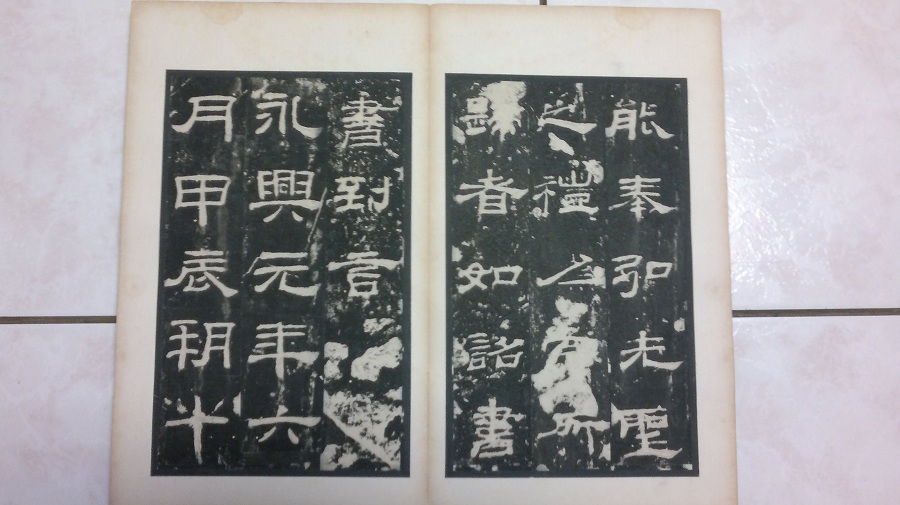 能奉弘先聖
之禮為宗所
歸者如詔書
書到言
永興元年六
月甲辰朔十